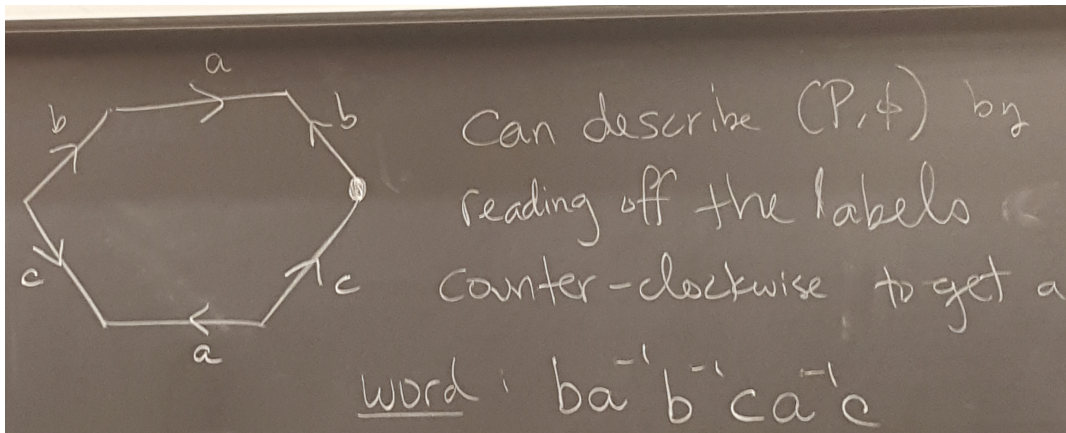 a
b
b
c
c
a
Can describe (P,ϕ) by
reading off the labels
counter-clockwise to get a
word: ba⁻¹b⁻¹ca⁻¹c